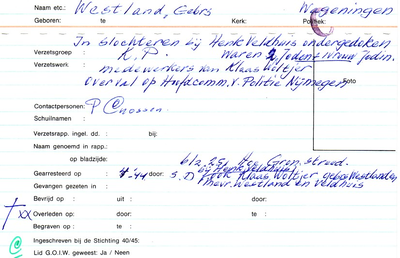 Naam etc.: Westland, Gebrs Wageningen
Geboren: te Kerk: Politiek:
In slochteren bij Henk Veldhuis ondergedoken
Verzetsgroep K.P. waren 2 Joden + vrouw jodin.
Verzetswerk: medewerkers van Klaas Woltjer
overval op Hoofdcomm. v. Politie Nijmegen
Foto
Contactpersonen: P Cnossen
Schuilnamen :
Verzetsrapp. ingel. dd. : bij:
Naam genoemd in rapp.:
op bladzijde: Gron.
bij Henk Veldhuis
Gearresteerd op : -'44 door: S.D ook Klaas Woltjer, gebrs Westland en
Gevangen gezeten in : mevr. Westland en Veldhuis
Bevrijd op : uit : door:
xx Overleden op: door: te :
Begraven op : te :
Ingeschreven bij de Stichting 40/45:
Lid G.O.I.W. geweest: Ja / Neen